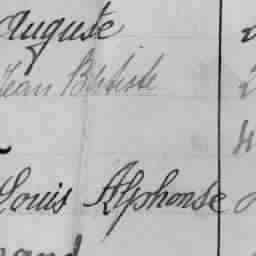 Auguste
Jean Baptiste
Louis Alphonse